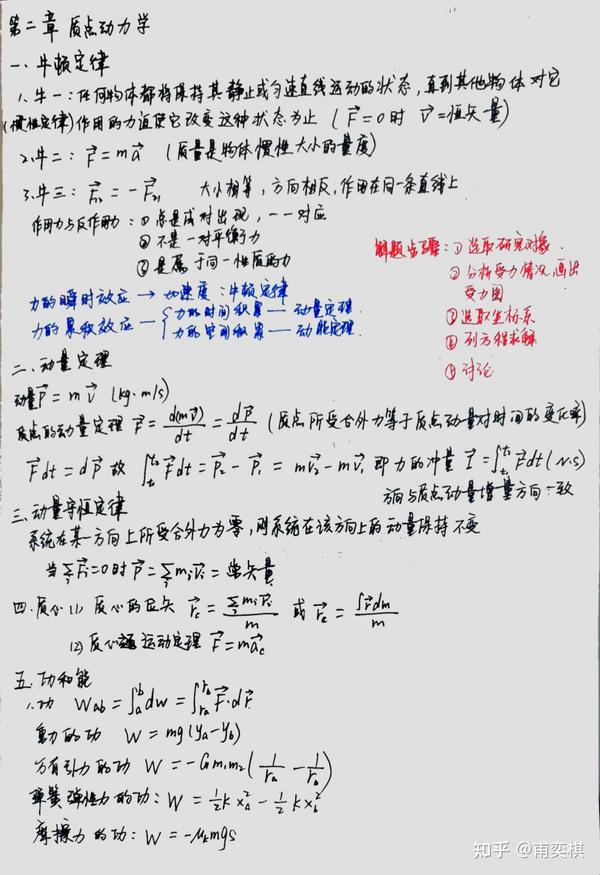 第二章 质点动力学
一、牛顿定律
1、牛一：任何物体都将保持其静止或匀速直线运动的状态，直到其他物体对它
(惯性定律)作用的力迫使它改变这种状态为止 (F⃗=0时 V⃗=恒矢量)
2、牛二：F⃗=ma⃗ (质量是物体惯性大小的量度)
3、牛三：F⃗₁₂=-F⃗₂₁ 大小相等，方向相反，作用在同一条直线上
作用力与反作用力：①总是成对出现，一一对应
②不是一对平衡力
③是属于同一性质的力
解题步骤：①选取研究对象.
②分析受力情况，画出
受力图
③选取坐标系
④列方程求解
⑤讨论
力的瞬时效应→加速度：牛顿定律
力的累积效应—{力的时间积累—动量定理
力的空间积累—动能定理.
二、动量定理
动量P⃗=mv⃗ (kg·m/s)
质点的动量定理 F⃗=d(mv⃗)/dt=dP⃗/dt (质点所受合外力等于质点动量对时间的变化率)
F⃗dt=dP⃗ 故 ∫_{t₁}^{t₂}F⃗dt=P⃗₂-P⃗₁=mv⃗₂-mv⃗₁ 即力的冲量 I⃗=∫_{t₁}^{t₂}F⃗dt(N·S)
方向与质点动量增量方向一致
三、动量守恒定律
系统在某一方向上所受合外力为零，则系统在该方向上的动量保持不变
当∑F⃗ᵢ=0时P⃗=∑mᵢv⃗ᵢ=常矢量
四、质心 (1) 质心的位矢 r⃗c=∑mᵢr⃗ᵢ/m 或 r⃗c=∫r⃗dm/m
(2) 质心运动定理 F⃗=ma⃗c
五、功和能
1、功 Wab=∫ₐᵇdw=∫_{ra}^{rb}F⃗·dr⃗
重力的功 W=mg(ya-yb)
万有引力的功 W=-Gm₁m₂(1/ra-1/rb)
弹簧弹性力的功：W=½kxa²-½kxb²
摩擦力的功：W=-μₖmgs
知乎 @甫奕棋